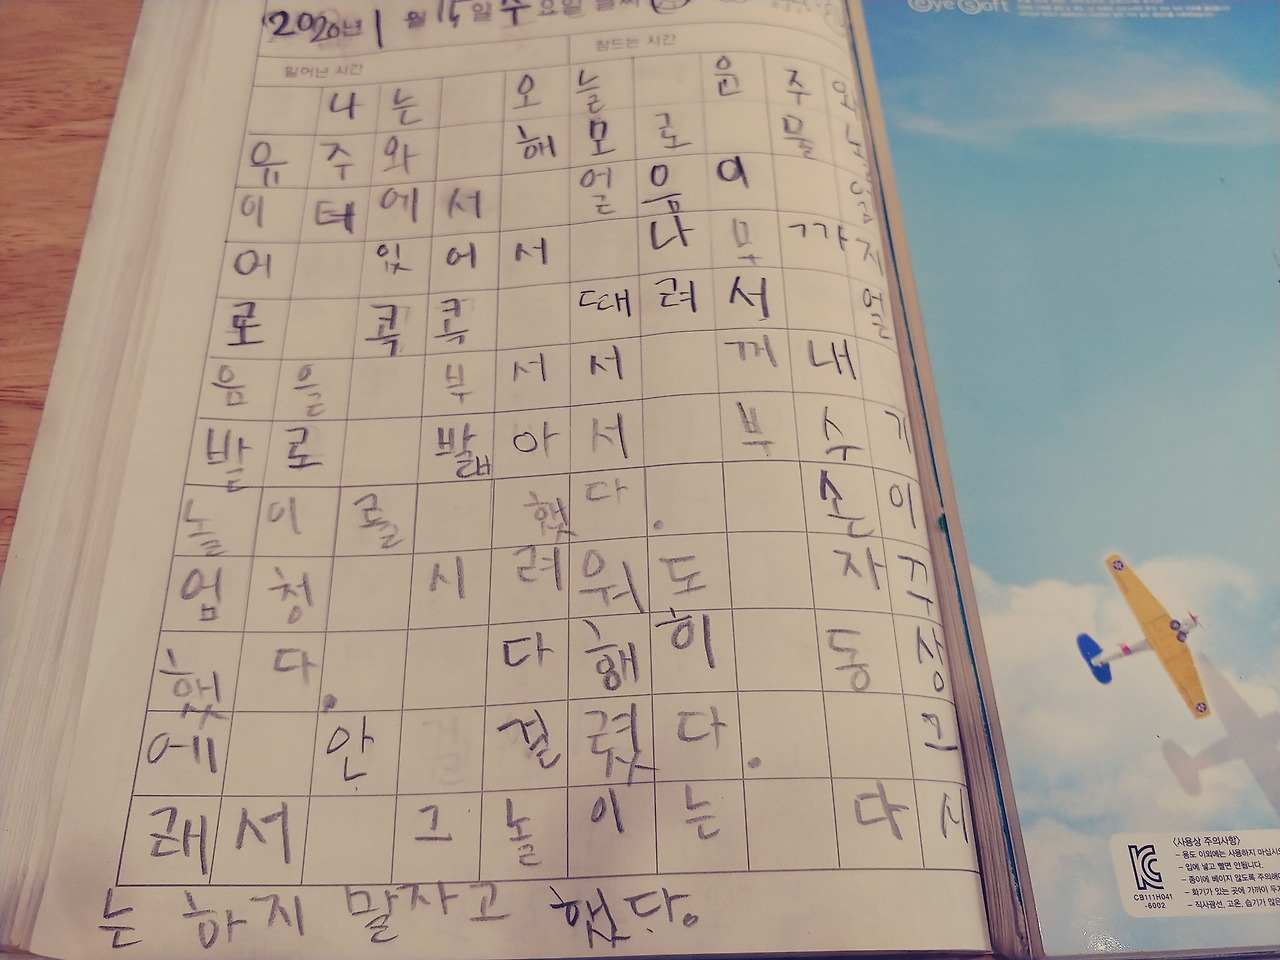 2020년 1월 15일 수요일 날씨
일어난 시간 잠드는 시간
나는 오늘 윤주와
유주와 해모로 물놀
이터에서 얼음이
어 있어서 나무까지
로 콕콕 때려서 얼
음을 부서서 꺼내
발로 발아서 부수기
놀이를 했다. 손이
엄청 시려워도 자꾸
했다. 다행히 동상
에 안 걸렸다. 그
래서 그 놀이는 다시
는 하지 말자고 했다.
eye Soft
KC
CB111H041
-6002
〈사용상 주의사항〉
- 용도 이외에는 사용하지 마십시오
- 입에 넣고 빨면 안됩니다.
- 종이에 베이지 않도록 주의해
- 화기가 있는 곳에 가까이 두지
- 직사광선, 고온, 습기가 많은